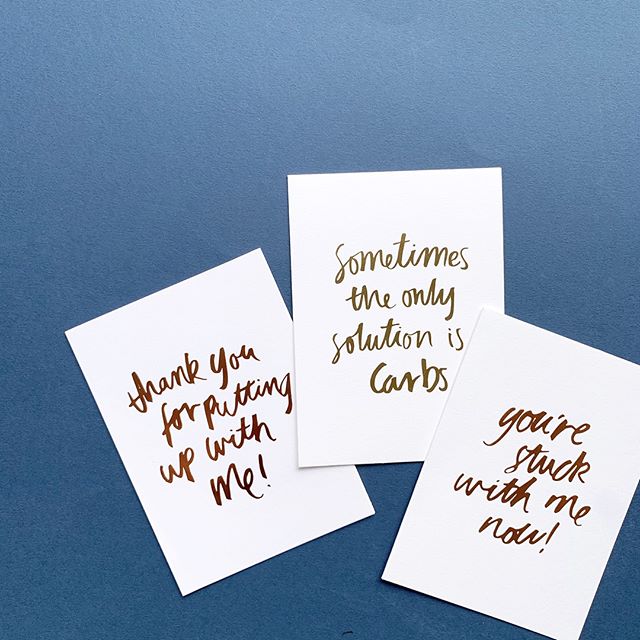 thank you
for putting
up with
me!
Sometimes
the only
solution is
Carbs
you're
stuck
with me
now!